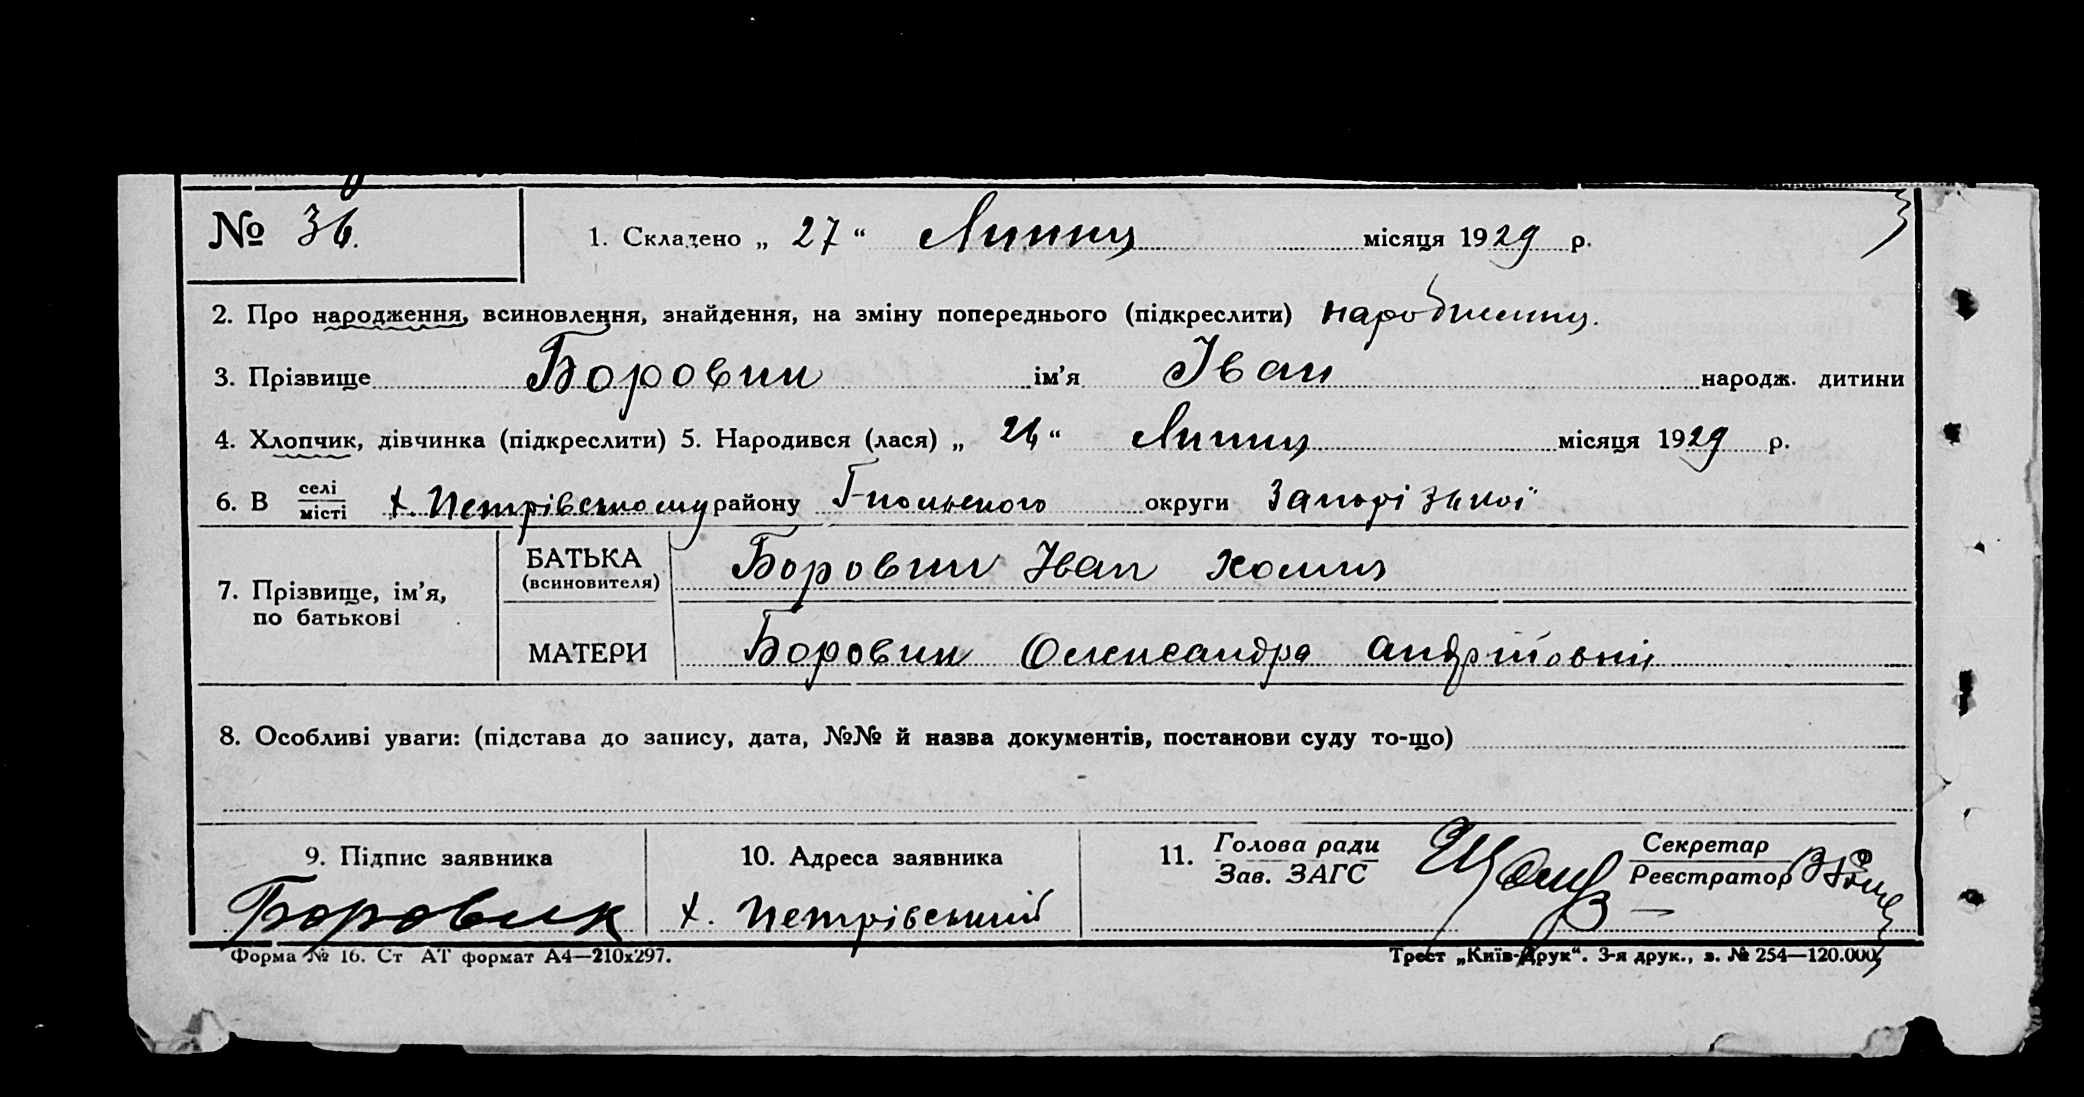 № 36. 1. Складено „ 27 “ Липця місяця 1929 р.
2. Про народження, всиновлення, знайдення, на зміну попереднього (підкреслити) народження.
3. Прізвище Боровик ім’я Іван народж. дитини
4. Хлопчик, дівчинка (підкреслити) 5. Народився (лася) „ 24 “ Липця місяця 1929 р.
6. В селі місті х. Петрівському району Г-Польського округи Запорізької
7. Прізвище, ім’я, по батькові
БАТЬКА (всиновителя) Боровик Иван Хомич
МАТЕРИ Боровик Олександра Андріївна
8. Особливі уваги: (підстава до запису, дата, №№ й назва документів, постанови суду то-що)
9. Підпис заявника
Боровик
10. Адреса заявника
х. Петрівський
11. Голова ради
Зав. ЗАГС
Секретар
Реєстратор
Форма № 16. Ст АТ формат А4—210х297.
Трест „Київ-Друк“. 3-я друк., з. № 254—120.000